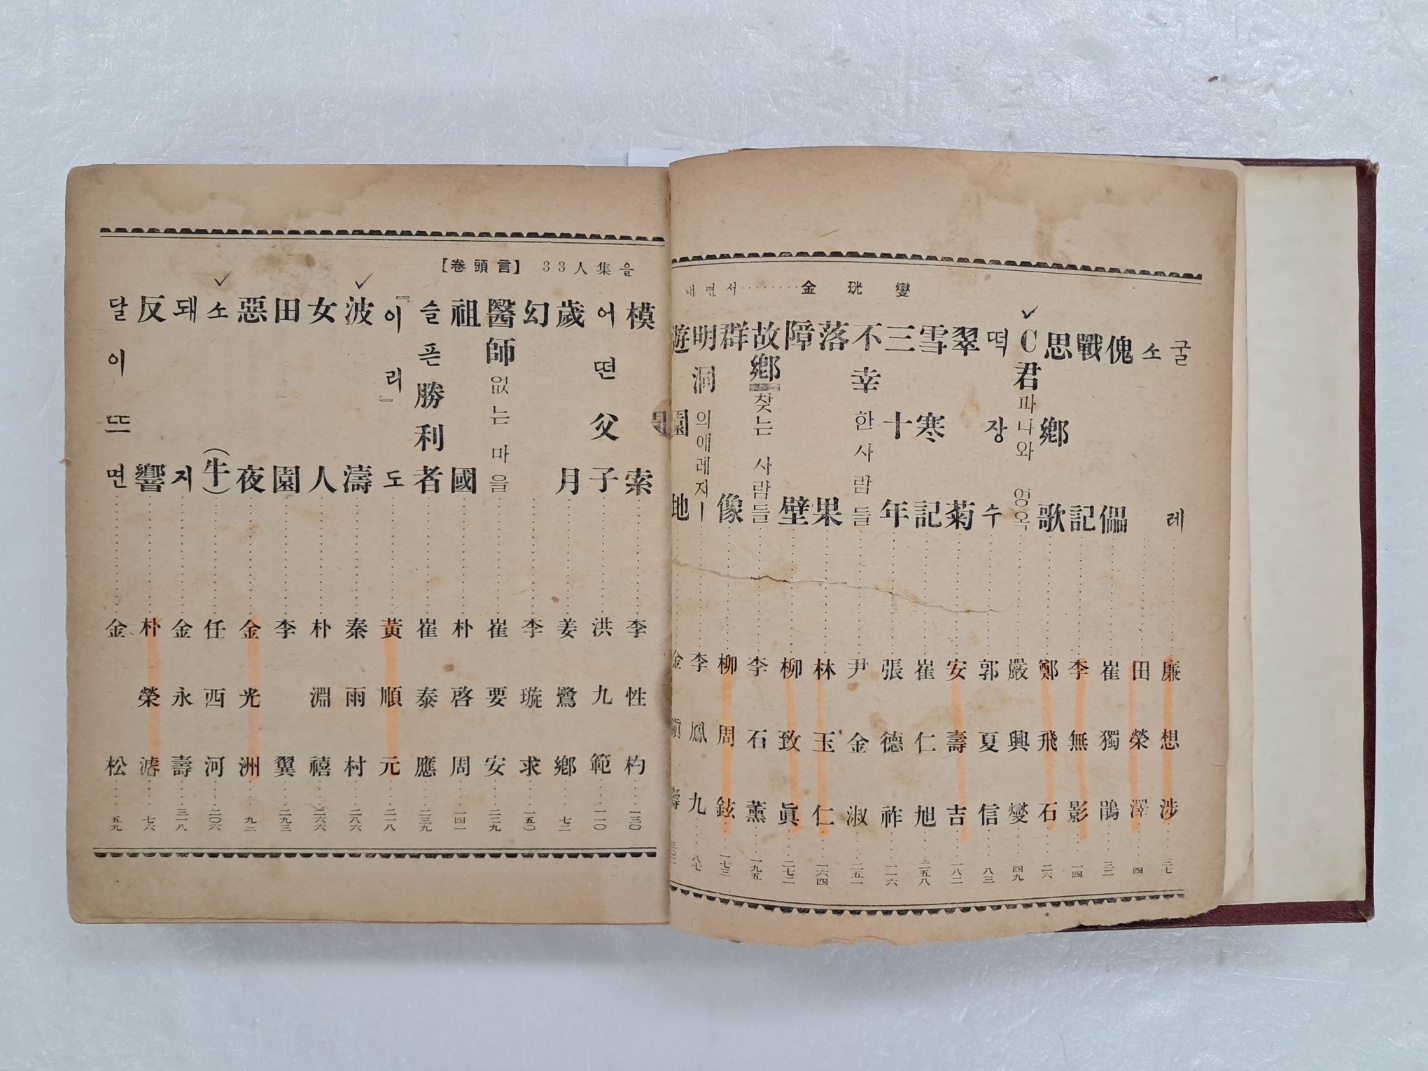 【卷頭言】 33人集을 내면서········金珖燮
굴레········廉想涉··三七
소········田榮澤··四
傀儡········崔獨鵑··三一
戰記········李無影··一四
思鄕歌········鄭飛石··二六
C君파나와 영옥········嚴興燮··四九
떡장수········郭夏信··八三
翠菊········安壽吉··一八二
雪寒記········崔仁旭··二五八
三十年········張德祚··一一六
不幸한사람들········尹金淑··二五一
落果········林玉仁··一六四
障壁········柳致眞··二七二
故鄕찾는 사람들········李石薰··一九五
群像········柳周鉉··一七三
明洞의애레지ー········李鳳九··八七
遊園地········金鎭壽
模索········李性杓··一三〇
어떤父子········洪九範··一一〇
歲月········姜鷺鄕··七二
幻········李璇求··一五〇
醫師없는 마을········崔要安··二二九
祖國········朴啓周··一四一
슬픈勝利者········崔泰應··二三九
『이리』도········黃順元··二一八
波濤········秦雨村··二八六
女人········朴淵禧··二六六
田園········李翼··二九三
惡夜········金光洲··九二
소(牛)········任西河··二〇六
돼지········金永壽··三一八
反響········朴榮濬··七六
달이뜨면········金松··五九